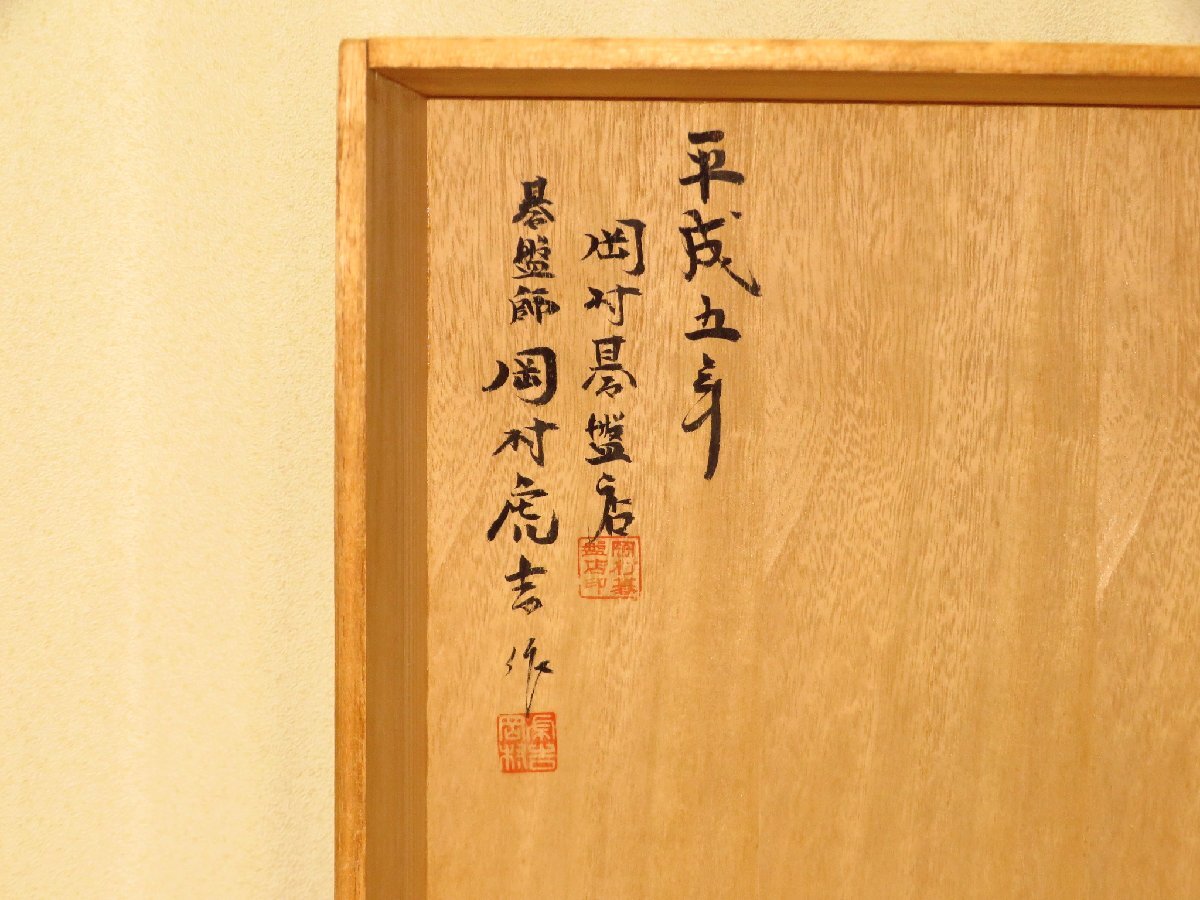 平成五年
岡村碁盤店
岡村碁盤店印
碁盤師 岡村虎吉 作